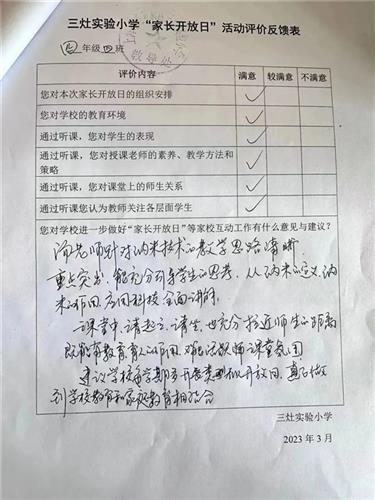 三灶实验小学“家长开放日”活动评价反馈表
四年级四班
评价内容 满意 较满意 不满意
您对本次家长开放日的组织安排 ✓
您对学校的教育环境 ✓
通过听课，您对学生的表现 ✓
通过听课，您对授课老师的素养、教学方法和
策略 ✓
通过听课，您对课堂上的师生关系 ✓
通过听课您认为教师关注各层面学生 ✓
您对学校进一步做好“家长开放日”等家校互动工作有什么意见与建议？
老师针对纳米技术的教学思路清晰
重点突出，能充分引导学生的思考，从纳米的定义，纳
米的作用，方向科技全面讲解。
课堂中，请起立、请坐，也充分拉近师生的距离
既能有教育育人的作用，课堂氛围
建议学校每学期多开展类似开放日，真正做
到学校教育和家庭教育相结合
三灶实验小学
2023 年 3 月